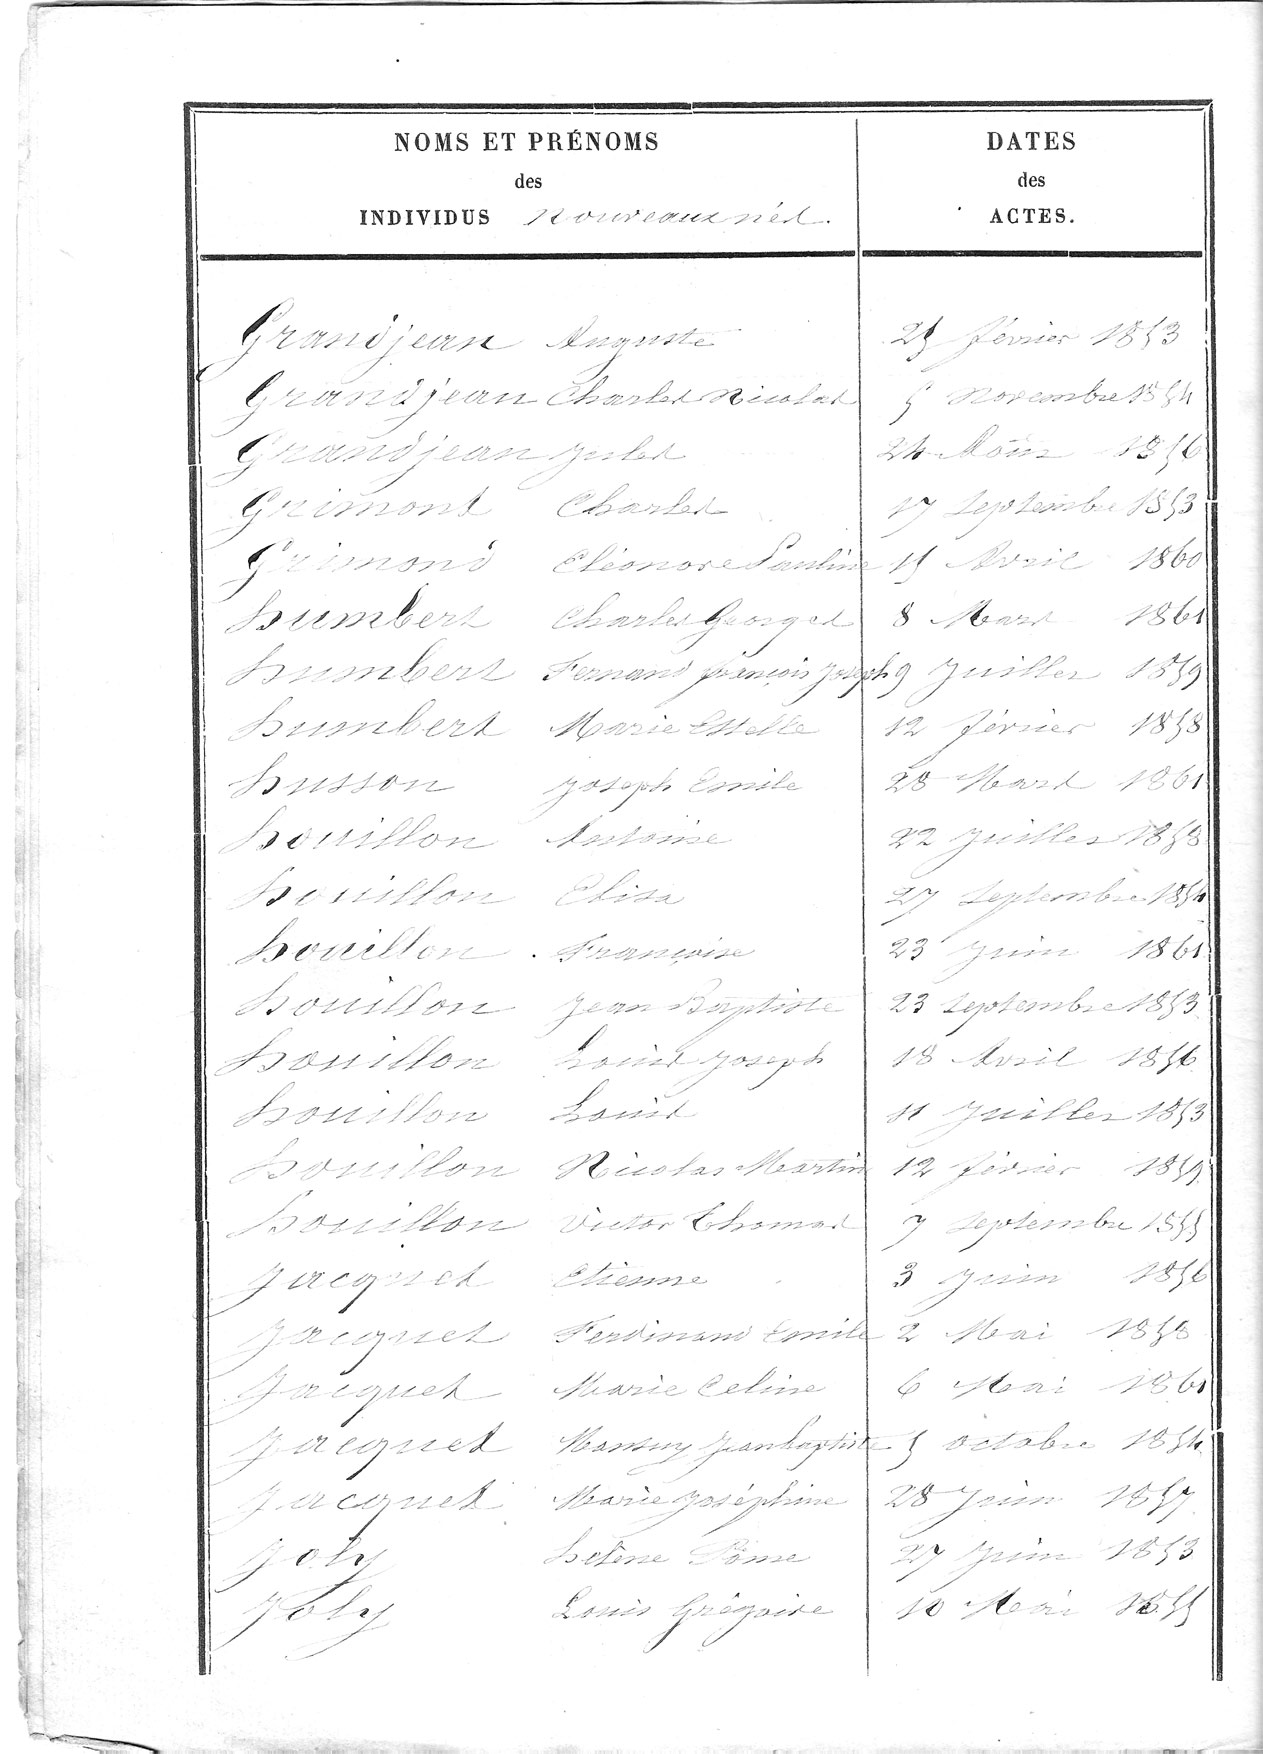 NOMS ET PRÉNOMS
des
INDIVIDUS nouveaux nés.
DATES
des
ACTES.
Grandjean Auguste 25 février 1853
Grandjean Charles Nicolas 5 novembre 1854
Grandjean Jules 24 Août 1856
Grimont Charles 17 Septembre 1853
Grimond Eléonore Pauline 15 Avril 1860
humbert Charles Georges 8 Mars 1861
humbert Fernand françois Joseph 9 Juillet 1859
humbert Marie Estelle 12 février 1858
husson Joseph Emile 28 Mars 1861
houillon Antoine 22 Juillet 1858
houillon Elisa 27 Septembre 1854
houillon Françoise 23 Juin 1861
houillon Jean Baptiste 23 Septembre 1853
houillon Louis Joseph 18 Avril 1856
houillon Louis 11 Juillet 1853
houillon Nicolas Martin 12 février 1859
houillon Victor Thomas 7 Septembre 1855
Jacquet Etienne 3 Juin 1856
Jacquet Ferdinand Emile 2 Mai 1858
Jacquet Marie Celine 6 Mai 1861
Jacquet Mansuy Jean baptiste 5 octobre 1854
Jacquet Marie Joséphine 28 Juin 1857
Joly helène 27 Juin 1853
Joly Louis Grégoire 10 Mai 1855